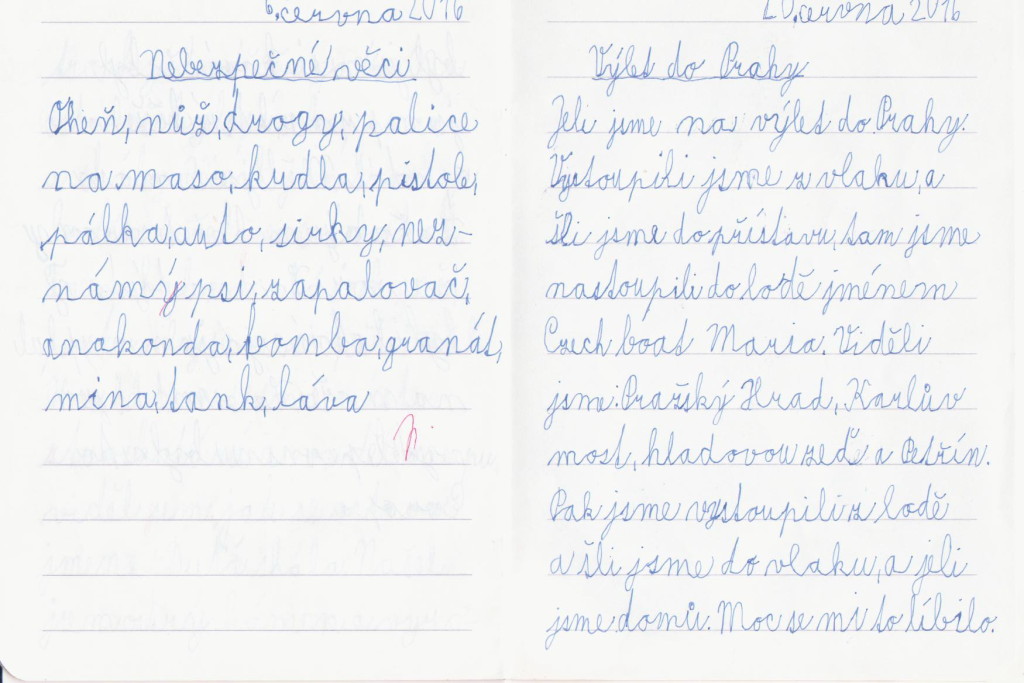 6. června 2016
Nebezpečné věci
Oheň, nůž, drogy, palice
na maso, kudla, pistole,
pálka, auto, sirky, nez-
námý psi, zapalovač,
anakonda, bomba, granát,
mina, tank, láva
20. června 2016
Výlet do Prahy
Jeli jsme na výlet do Prahy.
Vystoupili jsme z vlaku, a
šli jsme do přístavu, tam jsme
nastoupili do lodě jménem
Czech boat Maria. Viděli
jsme: Pražský Hrad, Karlův
most, hladovou zeď a Petřín.
Pak jsme vystoupili z lodě
a šli jsme do vlaku, a jeli
jsme domů. Moc se mi to líbilo.